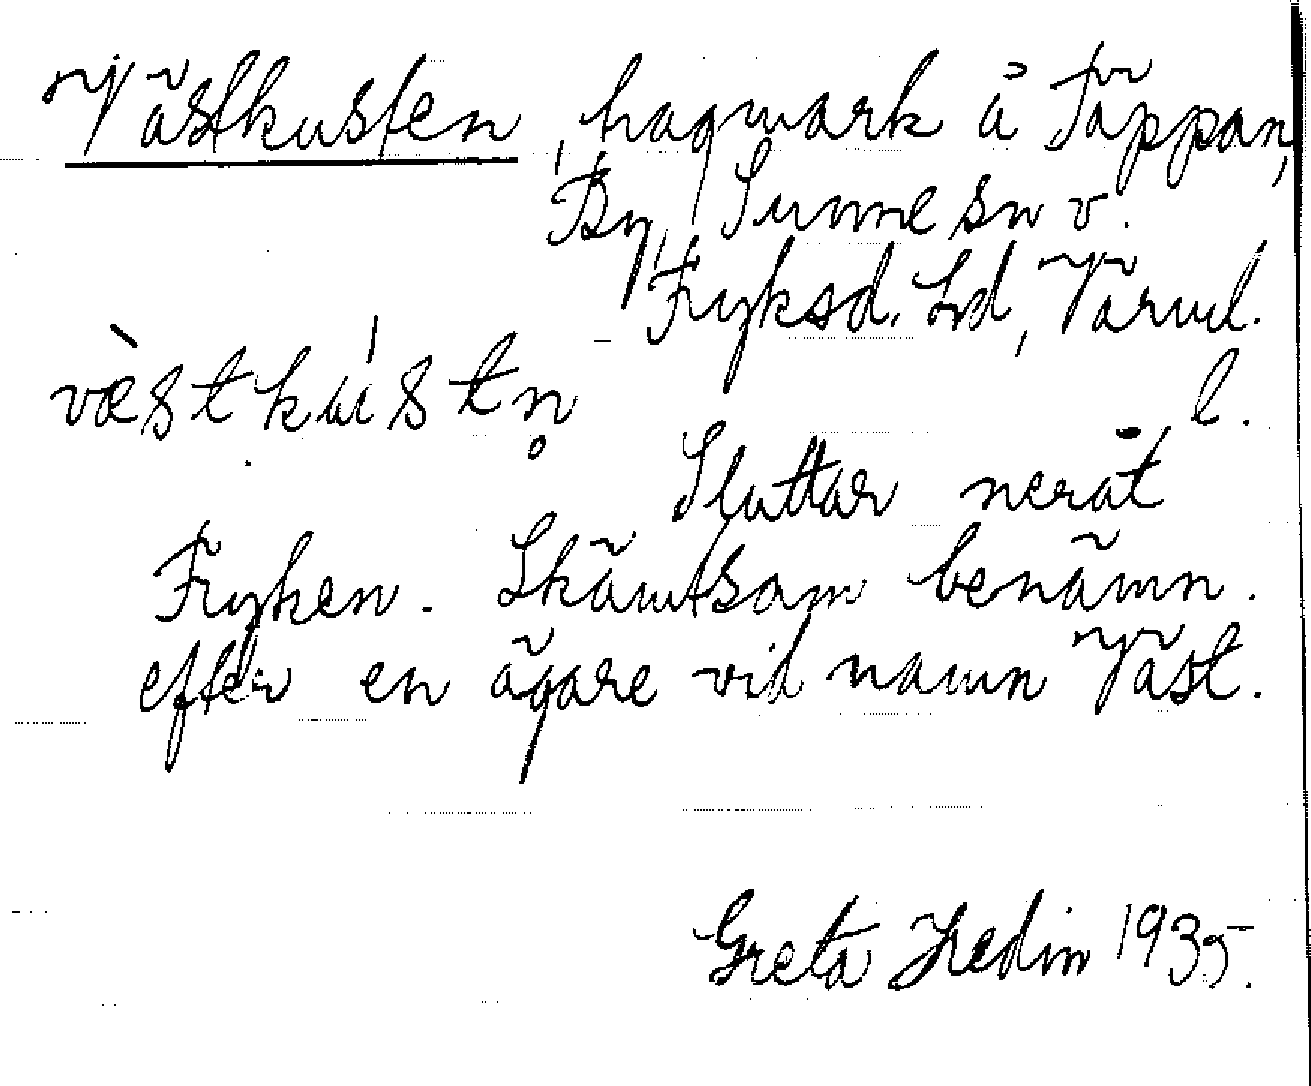 Västkusten, hagmark å Täppan,
By, Sunne sn v.
Fryksd. hd, Värml.
væ̀stkústn̥ l.
Sluttar neråt
Fryken. Skämtsam benämn.
efter en ägare vid namn Väst.
Greta Hedin 1935.